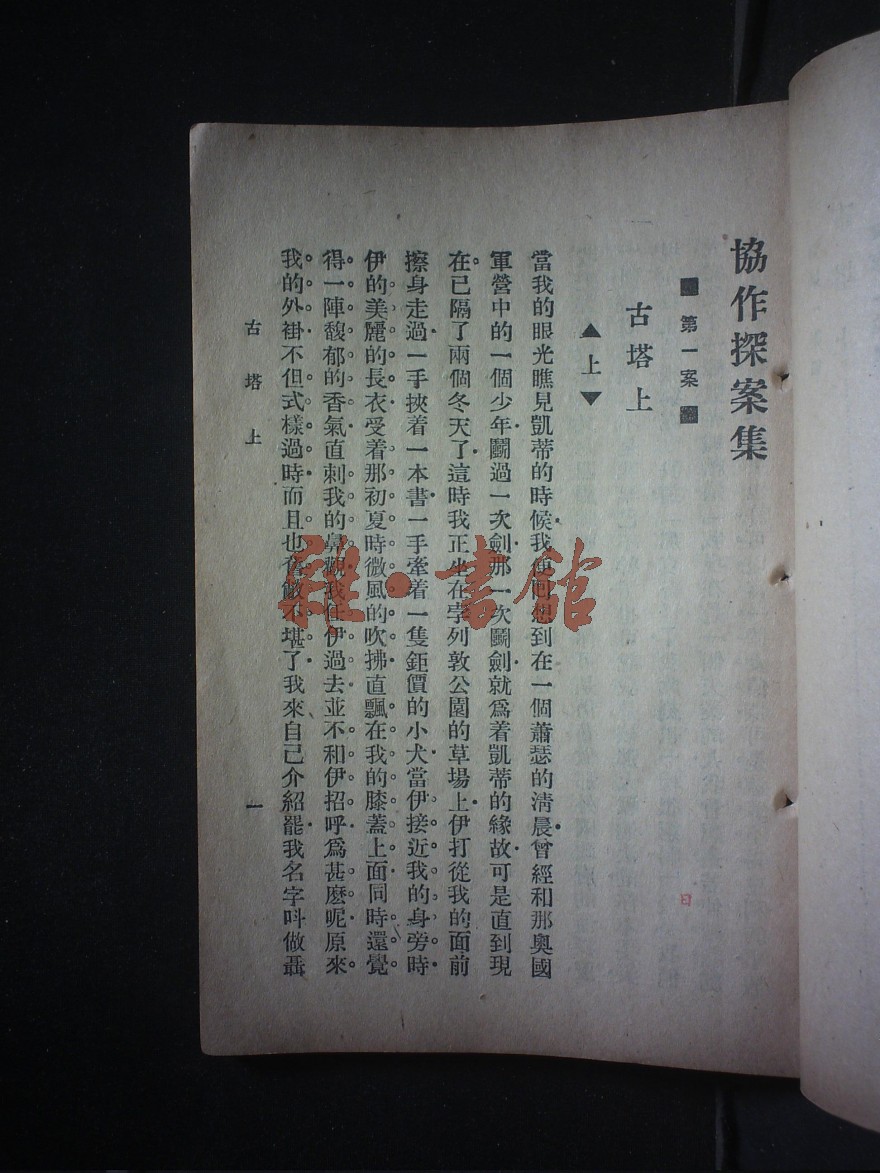 協作探案集
■第一案■
古塔上
▲上▼
當我的眼光瞧見凱蒂的時候我便回想到在一個蕭瑟的淸晨曾經和那奧國
軍營中的一個少年鬭過一次劍那一次鬭劍就爲着凱蒂的緣故可是直到現
在已隔了兩個冬天了這時我正坐在孛列敦公園的草場上伊打從我的面前
擦身走過一手挾着一本書一手牽着一隻鉅價的小犬當伊接近我的身旁時
伊的美麗的長衣受着那初夏時微風的吹拂直飄在我的膝蓋上面同時還覺
得一陣馥郁的香氣直刺我的鼻觀我任伊過去並不和伊招呼爲甚麼呢原來
我的外褂不但式樣過時而且也舊敝不堪了我來自己介紹罷我名字呌做聶
古塔上
一
雜·書館
日